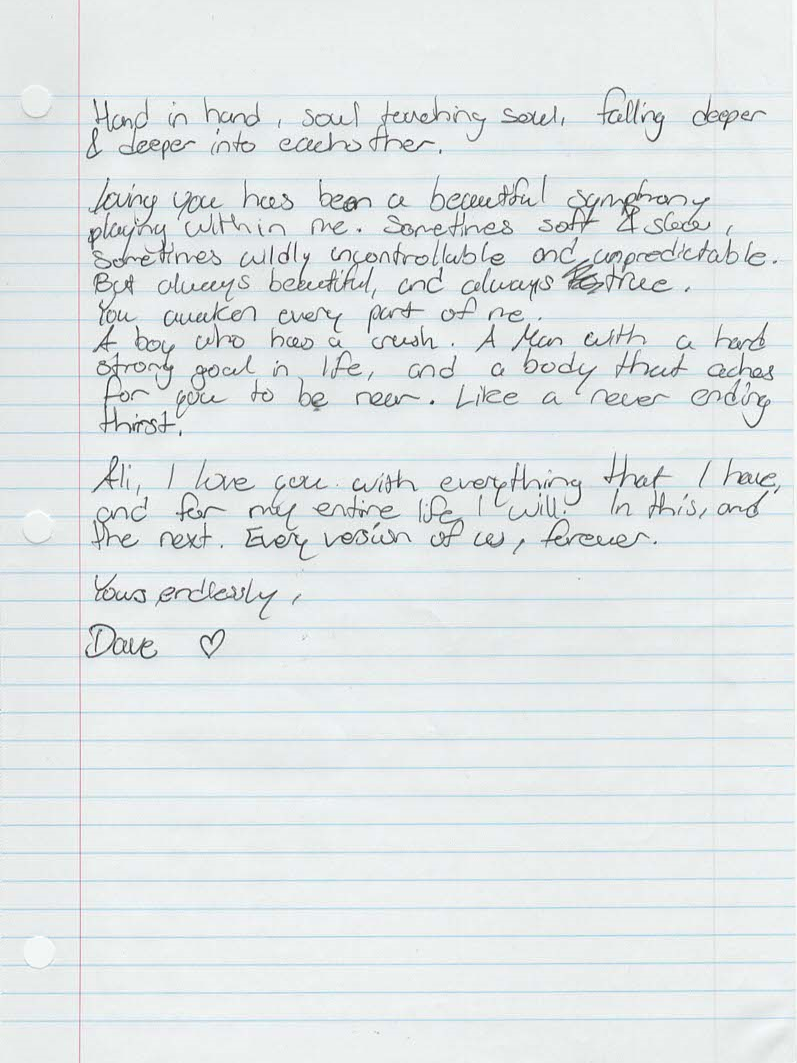 Hand in hand, soul touching soul, falling deeper
& deeper into eachother.
Loving you has been a beautiful symphony
playing within me. Sometimes soft & slow,
Sometimes wildly uncontrollable and unpredictable.
But always beautiful, and always true.
You awaken every part of me.
A boy who has a crush. A Man with a hard
strong goal in life, and a body that aches
for you to be near. Like a never ending
thirst.
Ali, I love you with everything that I have,
and for my entire life, I will. In this, and
the next. Every version of us, forever.
Yours endlessly,
Dave ♡